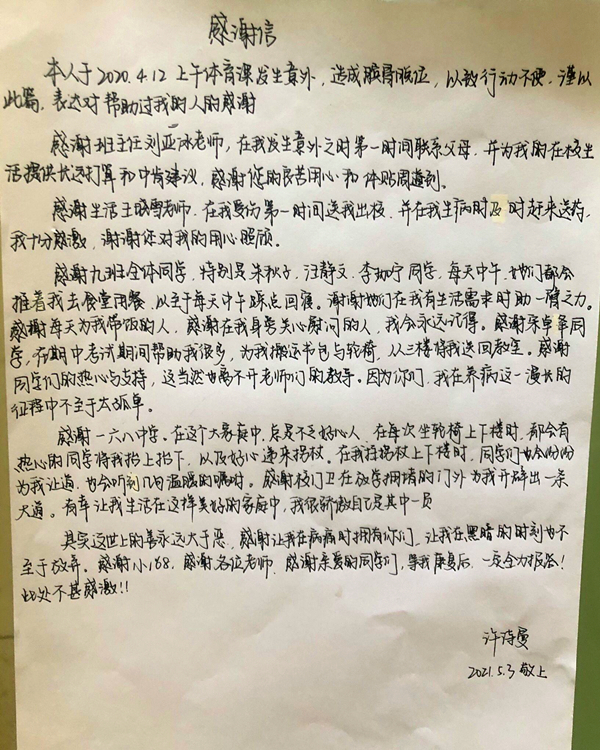 感谢信
本人于2020.4.12上午体育课发生意外，造成髌骨脱位，以致行动不便，谨以
此篇，表达对帮助过我的人的感谢
感谢班主任刘亚冰老师，在我发生意外之时第一时间联系父母，并为我的在校生
活提供长远打算和中肯建议，感谢您的良苦用心和体贴周道到。
感谢生活王晓雪老师，在我受伤第一时间送我出校，并在我生病时及时赶来送药，
我十分感激，谢谢您对我的用心照顾。
感谢九班全体同学，特别是朱秋子，汪静文，李珈宁同学，每天中午，她们都会
推着我去食堂用餐，以至于每天中午踩点回寝。谢谢她们在我有生活需求时助一臂之力。
感谢每天为我带饭的人，感谢在我身旁关心慰问的人，我会永远记得。感谢同
学，在期中考试期间帮助我很多，为我搬运书包与轮椅，从三楼将我送回教室。感谢
同学们的热心与支持，这当然也离不开老师们的教导。因为你们，我在养病这一漫长的
征程中不至于太孤单。
感谢一六八中学。在这个大家庭中，总是不乏好心人，在每次坐轮椅上下楼时，都会有
热心的同学将我抬上抬下，以及好心递来拐杖。在我拄拐杖上下楼时，同学们也会纷纷
为我让道，也会听到几句温暖的嘱咐。感谢校门卫在放学拥堵的门外为我开辟出一条
大道。有幸让我生活在这样美好的家庭中，我很骄傲自己是其中一员
其实这世上的善永远大于恶，感谢让我在病痛时拥有你们，让我在黑暗的时刻也不
至于放弃。感谢小168，感谢各位老师，感谢亲爱的同学们，等我康复后，一定全力报答！
此处不甚感激！！
许诗曼
2021.5.3 敬上